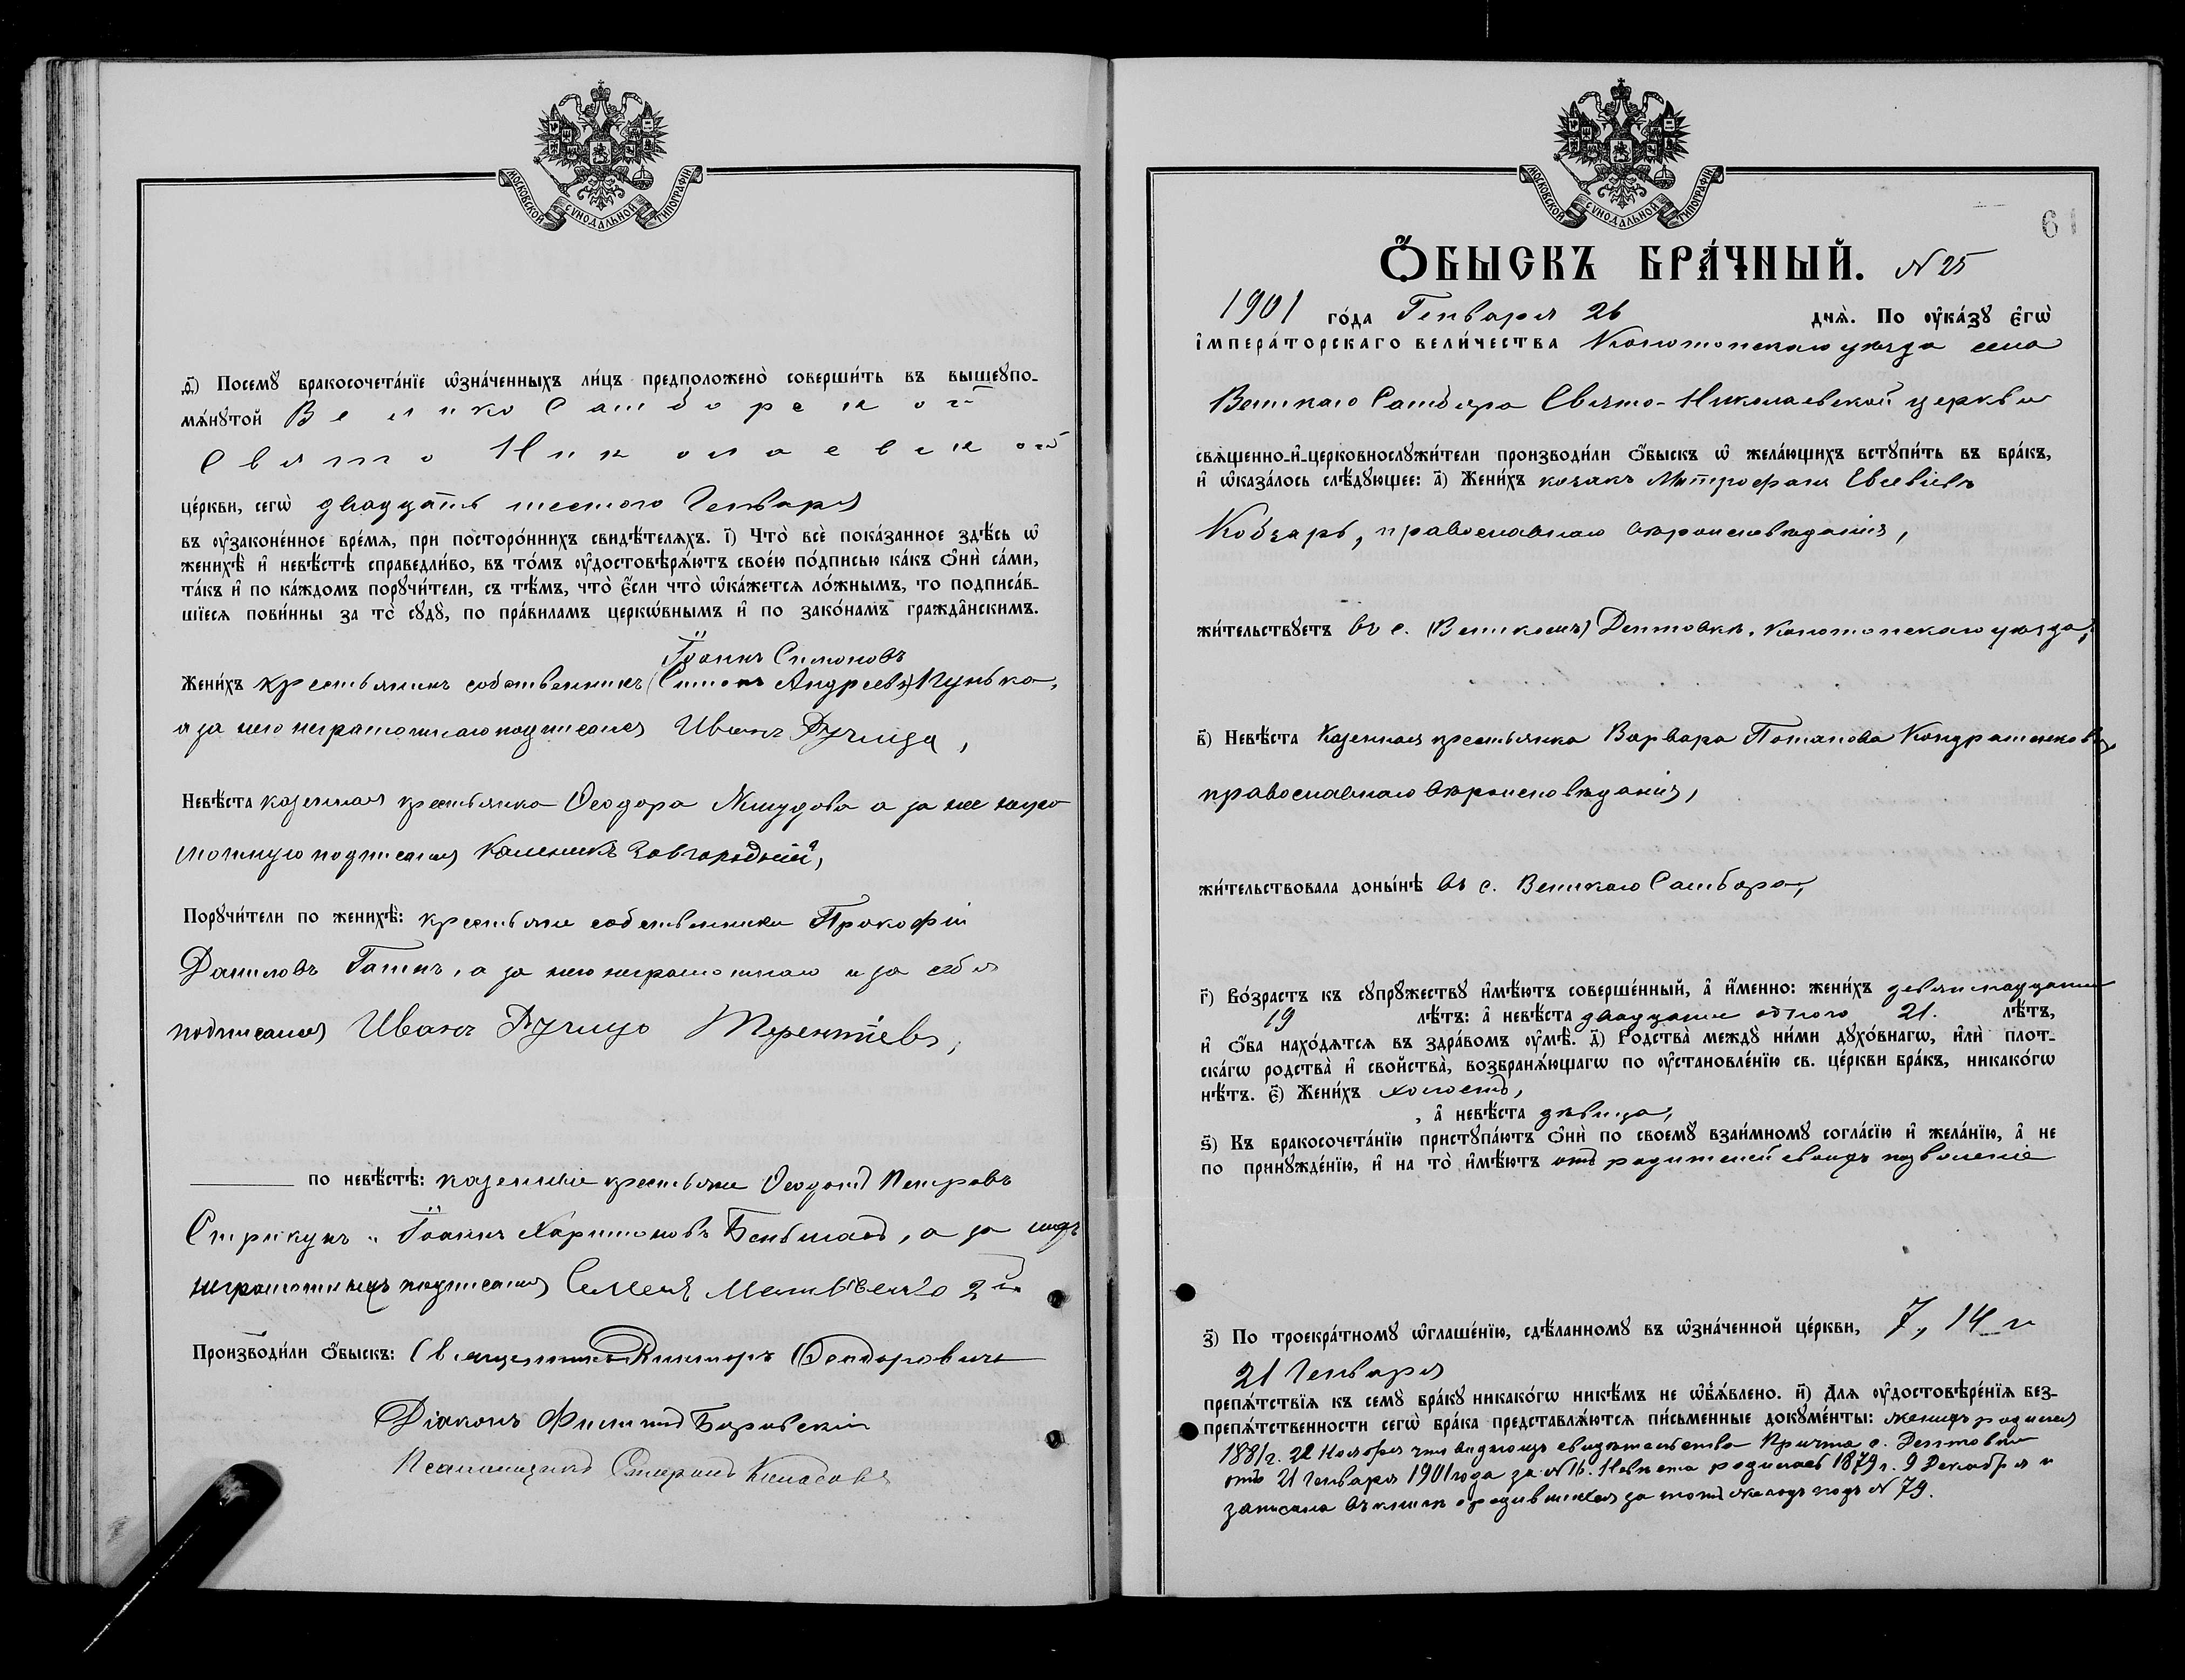 МОСКОВСКОЙ СѴНОДАЛЬНОЙ ТИПОГРАФІИ
ѳ҃) Посемꙋ̀ бракосочета́нїе ѡ҆зна́ченныхъ ли́цъ предположенò соверши́ть въ вышеꙋпо-
мѧ́нꙋтой Велико Самборской
Свято Николаевской
це́ркви, сегѡ̀ двадцать шестого Генваря
въ ᲂу҆зако́нённое вре́мѧ, при посторо́ннихъ свидѣ́телѧхъ. і҃) Что̀ всѐ пока́занное здѣ́сь ѡ҆
женихѣ̀ и҆ невѣ́стѣ справедли́во, въ то́мъ ᲂу҆достовѣрѧ́ютъ свое́ю по́дписью ка́къ ѻ҆нѝ са́ми,
та́къ и҆ по ка́ждомъ порꙋчи́тели, съ тѣ́мъ, что̀ є҆́сли что̀ ѡ҆ка́жетсѧ ло́жнымъ, то подписа́в-
шїесѧ пови́нны за то̀ сꙋдꙋ̀, по пра́виламъ церко́внымъ и҆ по зако́намъ гражда́нскимъ.
Іоаннъ Симоновъ
Жени́хъ крестьянинъ собственникъ (Симонъ Андреевъ) Пунька,
а за него неграмотнаго подписался Иванъ Ручица,
Невѣ́ста казенная крестьянка Ѳеодора а за нее негра
мотную подписался Каленикъ Завгородній,
Порꙋчи́тели по женихѣ̀: крестьяне собственники Прокофій
Даниловъ Гапинъ, а за него неграмотнаго и за себя
подписался Иванъ Ручицо Терентіевъ,
по невѣ́стѣ: казенные крестьяне Ѳеодотъ Петровъ
Стрикунъ и Іоаннъ Харитоновъ а за нихъ
неграмотныхъ подписался Семенъ Матвѣенко 2й
Произвѡди́ли ѻ҆́быскъ: Священникъ Викторъ Ѳеодоровичъ
Діаконъ Филиппъ Боровскій
Псаломщикъ Стефанъ
МОСКОВСКОЙ СѴНОДАЛЬНОЙ ТИПОГРАФІИ
61
Ѻ҆́БЫСКЪ БРА́ЧНЫЙ. N 25
1901 го́да Генваря 26 днѧ̀. По ᲂу҆ка́зꙋ є҆гѡ̀
і҆мпера́торскаго вели́чества Конотопскаго уѣзда села
Великаго Самбора Свято-Николаевской церкви
свѧще́нно-и҆-церковнослꙋжи́тели производи́ли ѻ҆́быскъ ѡ҆ жела́ющихъ встꙋпи́ть въ бра́къ,
и҆ ѡ҆каза́лось слѣ́дꙋющее: а҃) Жени́хъ козакъ Митрофанъ Евсевіевъ
Кобзарь, православнаго вѣроисповѣданія,
жи́тельствꙋетъ въ с. (Великомъ) Дептовкѣ, Конотопскаго уѣзда,
в҃) Невѣ́ста Казенная крестьянка Варвара Потапова Кондратенкова
православнаго вѣроисповѣданія,
жи́тельствовала доны́нѣ въ с. Великаго Самбора,
г҃) Во́зрастъ къ сꙋпрꙋ́жествꙋ и҆мѣ́ютъ соверше́нный, а҆ и҆́менно: жени́хъ девятнадцати
19 лѣ́тъ: а҆ невѣ́ста двадцати одного 21. лѣ́тъ,
и҆ ѻ҆́ба нахо́дѧтсѧ въ здра́вомъ ᲂу҆мѣ̀. д҃) Родства̀ междꙋ̀ ни́ми дꙋхо́внагѡ, и҆лѝ плот-
ска́гѡ родства̀ и҆ свойства̀, возбранѧ́ющагѡ по ᲂу҆становле́нїю св. це́ркви бра́къ, никако́гѡ
нѣ́тъ. є҃) Жени́хъ холостъ,
, а҆ невѣ́ста дѣвица,
ѕ҃) Къ бракосочета́нїю пристꙋпа́ютъ ѻ҆нѝ по своемꙋ̀ взаи́мномꙋ согла́сїю и҆ жела́нїю, а҆ не
по принꙋжде́нїю, и҆ на то̀ и҆мѣ́ютъ отъ родителей своихъ позволеніе
з҃) По троекра́тномꙋ ѡ҆глаше́нїю, сдѣ́ланномꙋ въ ѡ҆зна́ченной це́ркви, 7, 14 и
21 Генваря
препѧ́тствїѧ къ семꙋ̀ бра́кꙋ никако́гѡ никѣ́мъ не ѡ҆б̾ѧ́влено. и҃) Длѧ ᲂу҆достовѣре́нїѧ без-
препѧ́тственности сегѡ̀ бра́ка представлѧ́ютсѧ пи́сьменные докꙋме́нты: женихъ родился
1881 г. 22 Ноября что видно изъ свидѣтельства Причта с. Дептовки
отъ 21 Генваря 1901 года за N 16. Невѣста родилась 1879 г. 9 Декабря и
записана въ книгѣ о родившихся за тотъ же годъ подъ N 79.